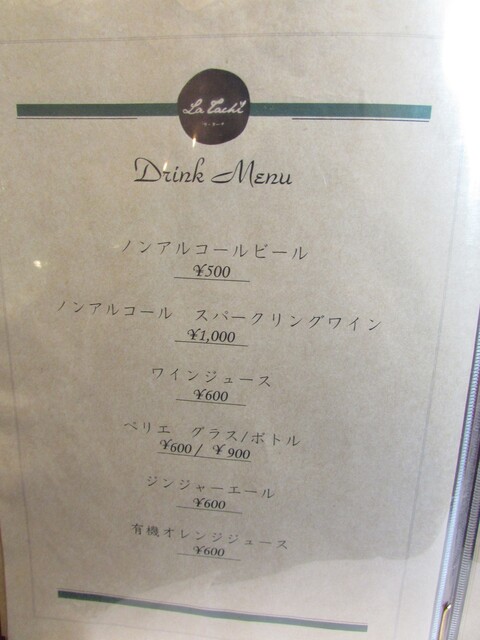 La Tachi
Drink Menu
ノンアルコールビール
¥500
ノンアルコール　スパークリングワイン
¥1,000
ワインジュース
¥600
ペリエ　グラス/ボトル
¥600 / ¥ 900
ジンジャーエール
¥600
有機オレンジジュース
¥600